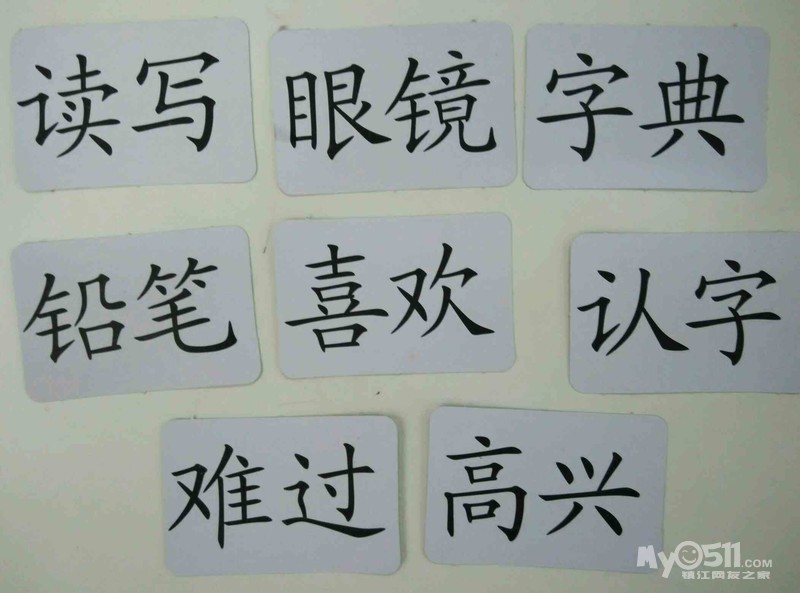 读写 眼镜 字典
铅笔 喜欢 认字
难过 高兴
My0511.COM
镇江网友之家